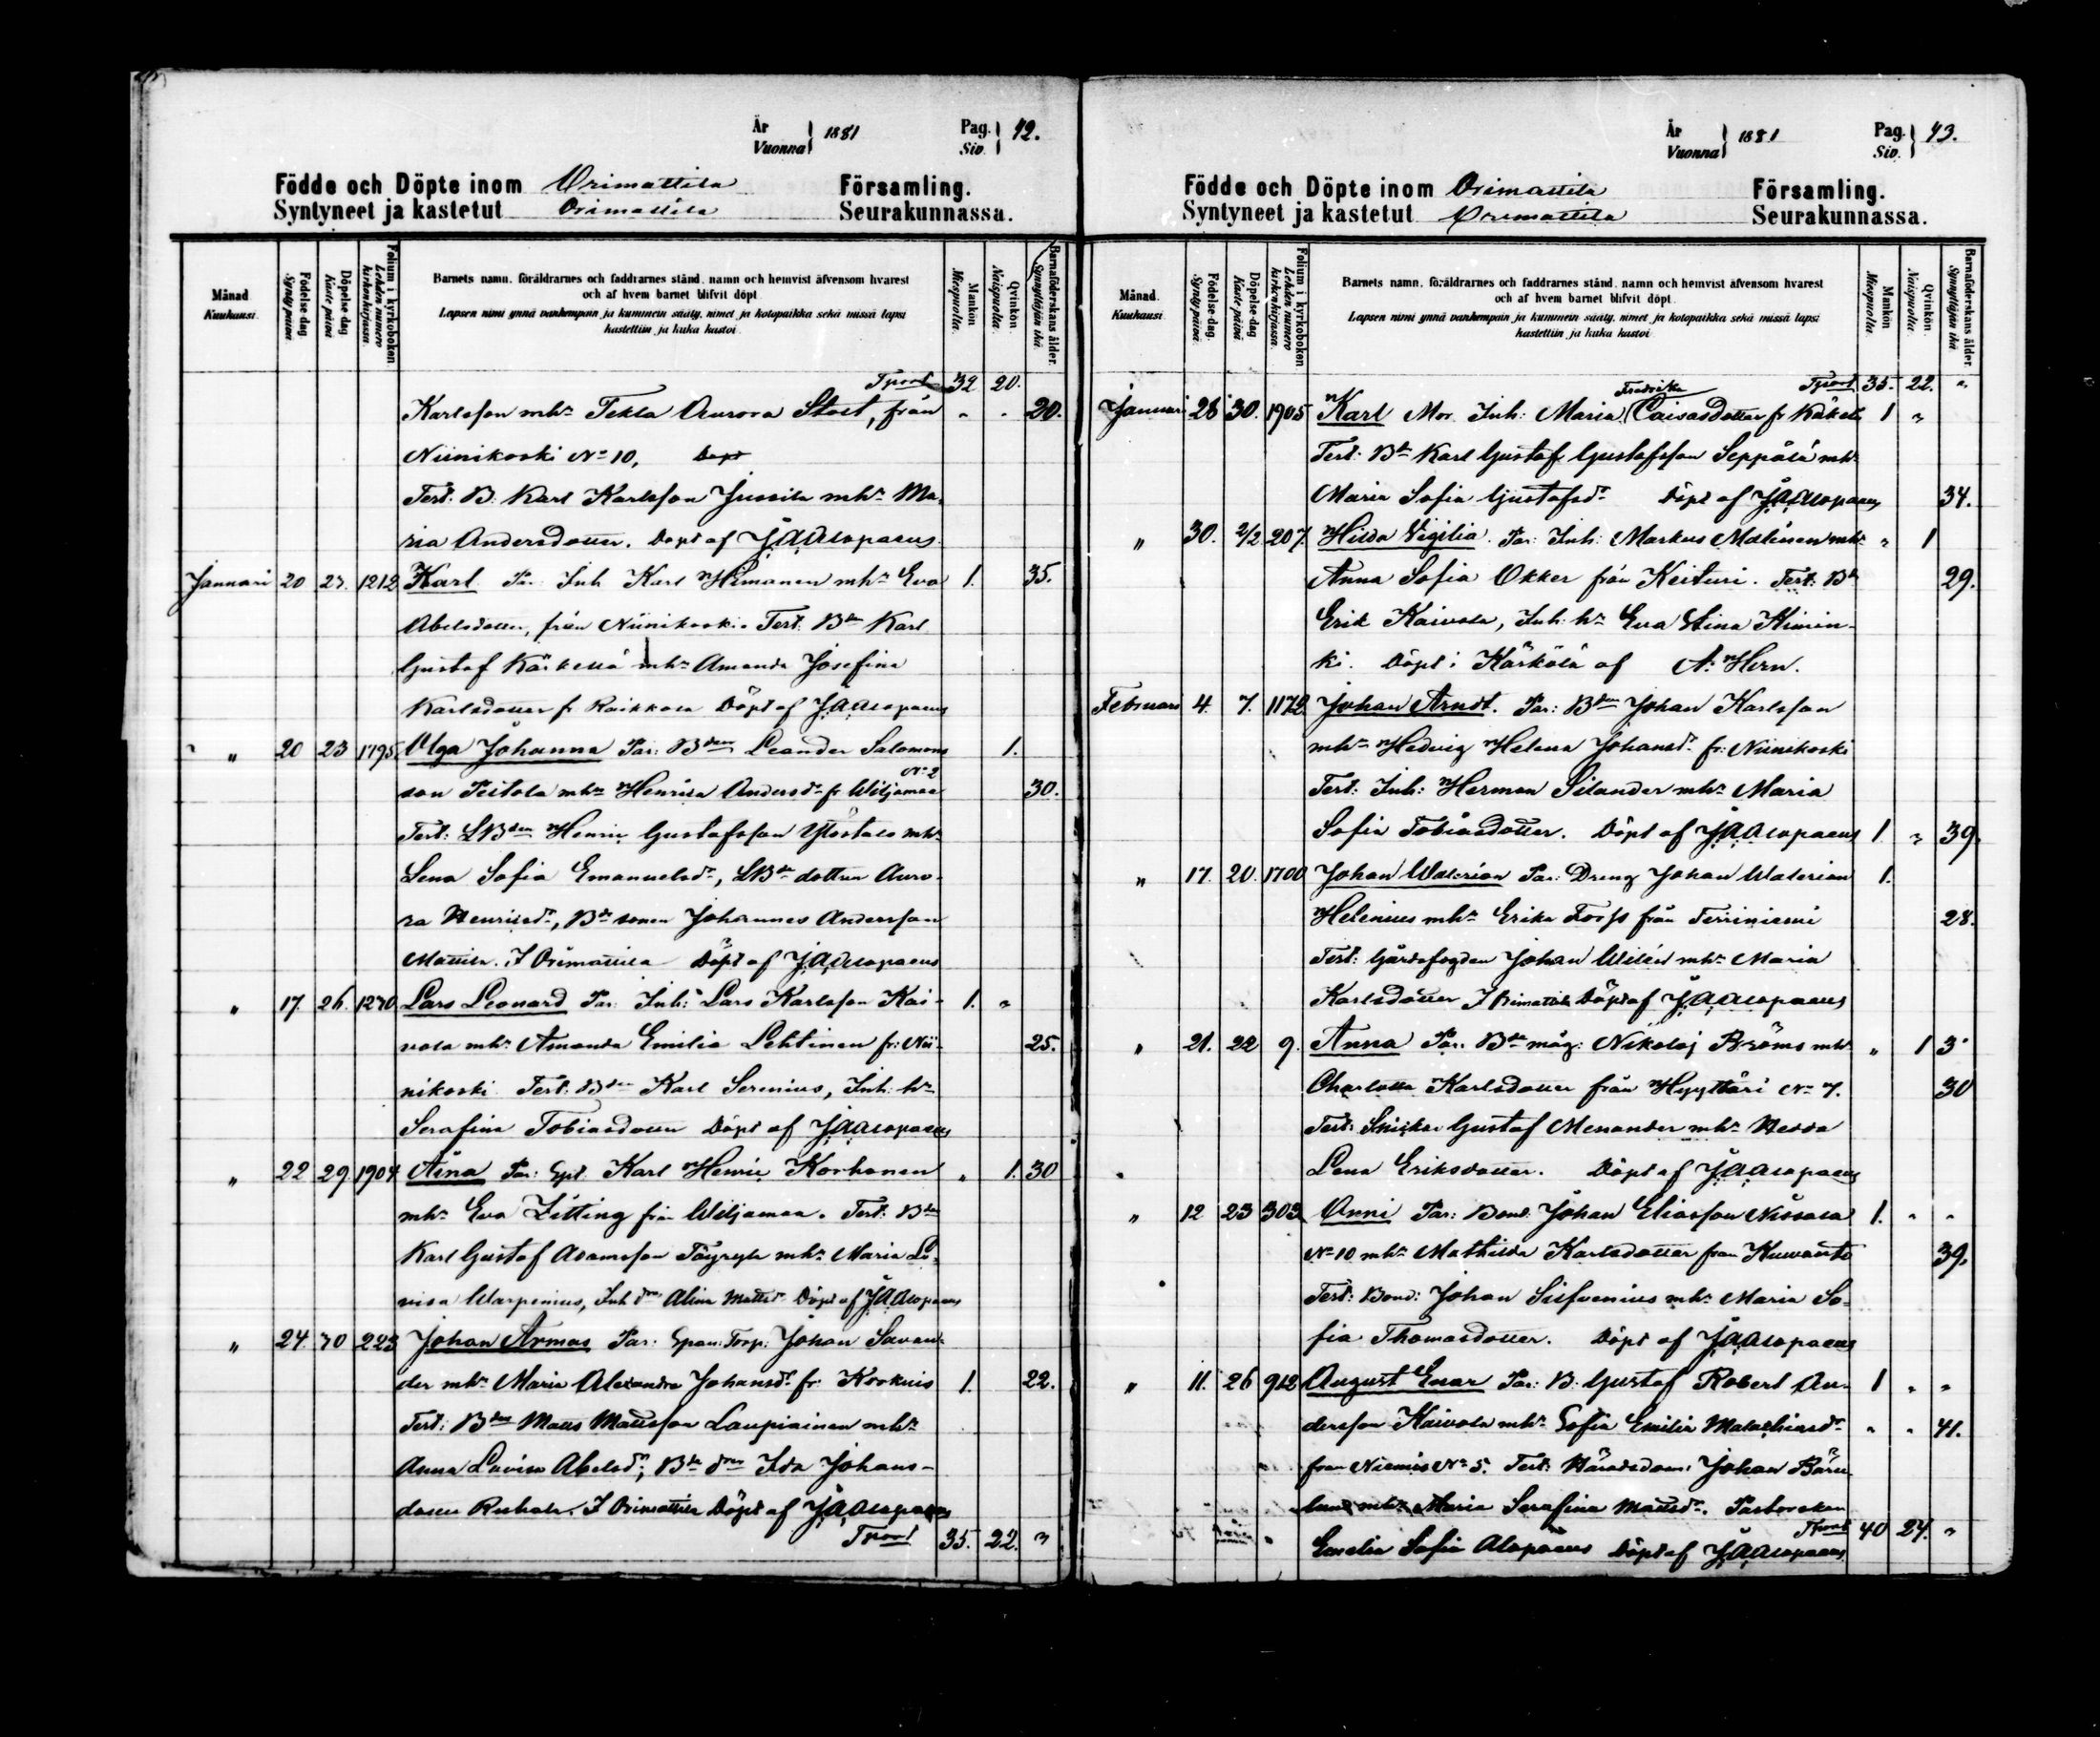 År Vuonna } 1881 Pag. Siv. } 42.
Födde och Döpte inom Orimattila Församling.
Syntyneet ja kastetut Orimattila Seurakunnassa.
Månad Kuukausi. Födelse dag. Synty päivä. Döpelse dag. Kaste päivä Folium i kyrkoboken Lehden numero kirkonkirjassa. Barnets namn, föräldrarnes och faddrarnes stånd, namn och hemvist äfvensom hvarest och af hvem barnet blifvit döpt. Lapsen nimi ynnä vanhempain ja kummein sääty, nimet ja kotopaikka sekä missä lapsi kastettiin ja kuka kastoi. Mankön Miespuolta. Qvinkön. Naispuolta. Barnaföderskans ålder. Synnyttäjän ikä.
Tport 32 20.
Karlsson mhn Tekla Aurora Stolt, från " " 20.
Niinikoski No 10,
Test. B. Karl Karlsson Jussila mhn Ma-
ria Andersdotter. Döpt af J.A. Alopaeus
Januari 20 23. 1212 Karl Par: Inh Karl Himanen mhn Eva 1. 35.
Abelsdotter, från Niinikoski. Test: Bdn Karl
Gustaf Kärkelä mhn Amanda Josefina
Karlsdotter fr Raikkola Döpt af J.A. Alopaeus
" 20 23 1795 Olga Johanna Par: Bden Leander Salomons 1.
son Peitola mhn Henrika Andersdr fr Wiljamaa No 2 30.
Test: LBden Henric Gustafsson Ylöstalo mhn
Lena Sofia Emanuelsdr, LBde dottren Auro-
ra Henricsdr, Bde sonen Johannes Andersson
Mattila. I Orimattila Döpt af J.A. Alopaeus
" 17. 26. 1270 Lars Leonard Par: Inh: Lars Karlsson Kai- 1. "
vola mhn Amanda Emilia Lehtinen fr: Nii- 25.
nikoski Test: Bden Karl Serenius, Inh: hn
Serafina Tobiasdotter Döpt af J.A. Alopaeus
" 22 29 1904 Aina Par: Karl Henric Korhonen " 1. 30
mhn Eva Zitting från Wiljamaa. Test: Bden
Karl Gustaf Adamsson Töyrylä mhn Maria Lo-
visa Warpenius, Inh dn Alina Mattsdr Döpt af J.A. Alopaeus
" 24. 30 223 Johan Armas Par: Span: Torp: Johan Savan-
der mhn Maria Alexandra Johansdr fr: Koskuis 1. 22.
Test: Bden Matts Mattsson Laupiainen mhn
Anna Lovisa Abelsdr, Bde drn Ida Johans-
dotter I Orimattila Döpt af J.A. Alopaeus
Tport 35. 22. "
År Vuonna } 1881 Pag. Siv. } 43.
Födde och Döpte inom Orimattila Församling.
Syntyneet ja kastetut Orimattila Seurakunnassa.
Månad. Kuukausi. Födelse dag. Synty päivä. Döpelse dag Kaste päivä Folium i kyrkoboken Lehden numero kirkonkirjassa. Barnets namn, föräldrarnes och faddrarnes stånd, namn och hemvist äfvensom hvarest och af hvem barnet blifvit döpt. Lapsen nimi ynnä vanhempain ja kummein sääty, nimet ja kotopaikka sekä missä lapsi kastettiin ja kuka kastoi. Mankön Miespuolta. Qvinkön. Naispuolta. Barnaföderskans ålder. Synnyttäjän ikä.
Tport 35. 22. "
Januari 26 30. 1905 Karl Mor. Inh: Maria Fredrika Caisasdotter fr Käkelä 1 "
Test: Bdn Karl Gustaf Gustafsson Seppälä mhn
Maria Sofia Gustafsdr Döpt af J.A. Alopaeus 34.
" 30. 2/2 207. Hilda Vigilia. Par: Inh: Markus Malinen mhn " 1
Anna Sofia Okker från Keituri. Test: Bdn 29.
Erik Kaivola, Inh: hn Eva Stina Kimin-
ki. Döpt i Kärkölä af A: Hern.
Februari 4. 7. 1172 Johan Arndt. Par: Bden Johan Karlsson
mhn Hedvig Helena Johansdr fr: Niinikoski
Test: Inh: Herman Silander mhn Maria
Sofia Tobiasdotter. Döpt af J.A. Alopaeus 1 " 39.
" 17. 20. 1700 Johan Walerian Par: Dreng Johan Walerian 1.
Helenius mhn Erika Forss från Terriniemi 28.
Test: Gårdsfogden Johan Wilén mhn Maria
Karlsdotter I Orimattila Döpt af J.A. Alopaeus
" 21. 22 9. Anna Par: Bde måg: Nikolaj Bröms mhn " 1 3
Charlotta Karlsdotter från Hyyttäri No 7. 30
Test: Snickar Gustaf Menander mhn Hedda
Lena Eriksdotter. Döpt af J.A. Alopaeus
" 12 23 303 Anni Par: Bond: Johan Eliasson Nissola 1. " "
No 10 mhn Mathilda Karlsdotter från Kuivanto 39.
Test: Bond: Johan Silfvenius mhn Maria So-
fia Thomasdotter. Döpt af J.A. Alopaeus
" 11. 26 912 August Enar Par: B: Gustaf Robert An- 1 " "
dersson Kaivola mhn Sofia Emilia Malachiasdr " " 41.
från Niemis No 5. Test: Häradsdom: Johan Bärn-
lund mhn Maria Serafina Mattsdr. Pastorskan
Emelie Sofia Alopaeus Döpt af J.A. Alopaeus Tport 40 24. "